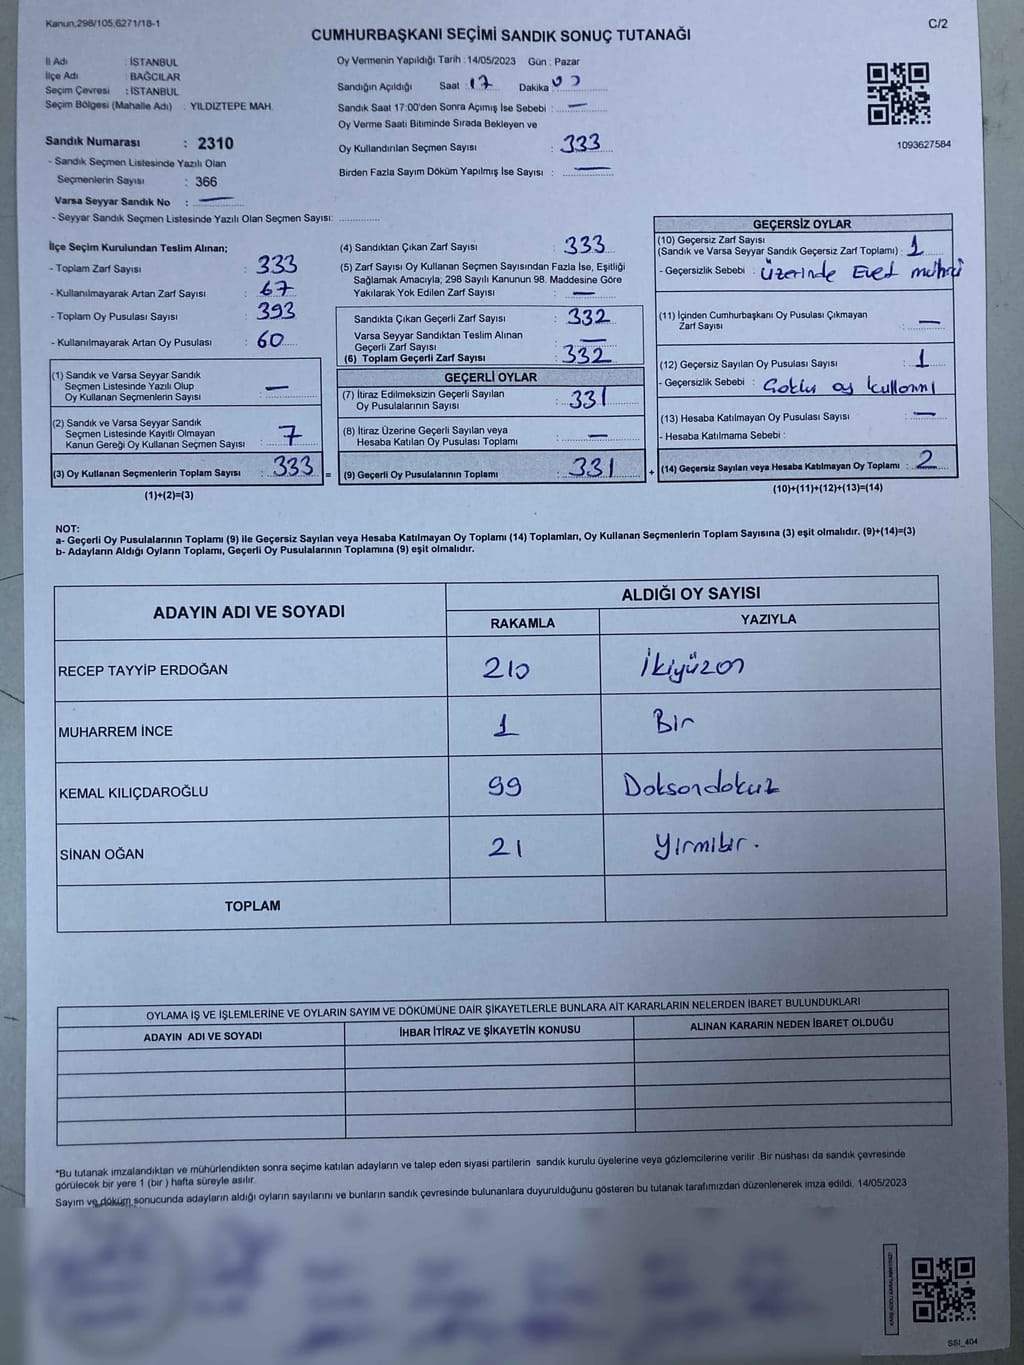 Kanun.298/105,6271/18-1
C/2
CUMHURBAŞKANI SEÇİMİ SANDIK SONUÇ TUTANAĞI
İl Adı : İSTANBUL
İlçe Adı : BAĞCILAR
Seçim Çevresi : İSTANBUL
Seçim Bölgesi (Mahalle Adı) : YILDIZTEPE MAH.
Oy Vermenin Yapıldığı Tarih : 14/05/2023 Gün : Pazar
Sandığın Açıldığı Saat : 17 Dakika 00
Sandık Saat 17:00'den Sonra Açımış İse Sebebi : —
Oy Verme Saati Bitiminde Sırada Bekleyen ve
Oy Kullandırılan Seçmen Sayısı : 333
Birden Fazla Sayım Döküm Yapılmış İse Sayısı : —
1093627584
Sandık Numarası : 2310
- Sandık Seçmen Listesinde Yazılı Olan
Seçmenlerin Sayısı : 366
Varsa Seyyar Sandık No : —
- Seyyar Sandık Seçmen Listesinde Yazılı Olan Seçmen Sayısı:
İlçe Seçim Kurulundan Teslim Alınan;
- Toplam Zarf Sayısı : 333
- Kullanılmayarak Artan Zarf Sayısı : 67
- Toplam Oy Pusulası Sayısı : 393
- Kullanılmayarak Artan Oy Pusulası : 60
(1) Sandık ve Varsa Seyyar Sandık
Seçmen Listesinde Yazılı Olup
Oy Kullanan Seçmenlerin Sayısı : —
(2) Sandık ve Varsa Seyyar Sandık
Seçmen Listesinde Kayıtlı Olmayan
Kanun Gereği Oy Kullanan Seçmen Sayısı : 7
(3) Oy Kullanan Seçmenlerin Toplam Sayısı : 333
(1)+(2)=(3)
(4) Sandıktan Çıkan Zarf Sayısı : 333
(5) Zarf Sayısı Oy Kullanan Seçmen Sayısından Fazla İse, Eşitliği
Sağlamak Amacıyla; 298 Sayılı Kanunun 98. Maddesine Göre
Yakılarak Yok Edilen Zarf Sayısı : —
Sandıkta Çıkan Geçerli Zarf Sayısı : 332
Varsa Seyyar Sandıktan Teslim Alınan
Geçerli Zarf Sayısı : —
(6) Toplam Geçerli Zarf Sayısı : 332
GEÇERLİ OYLAR
(7) İtiraz Edilmeksizin Geçerli Sayılan
Oy Pusulalarının Sayısı : 331
(8) İtiraz Üzerine Geçerli Sayılan veya
Hesaba Katılan Oy Pusulası Toplamı : —
= (9) Geçerli Oy Pusulalarının Toplamı : 331 +
GEÇERSİZ OYLAR
(10) Geçersiz Zarf Sayısı
(Sandık ve Varsa Seyyar Sandık Geçersiz Zarf Toplamı) : 1
- Geçersizlik Sebebi : Üzerinde Evet mührü
(11) İçinden Cumhurbaşkanı Oy Pusulası Çıkmayan
Zarf Sayısı : —
(12) Geçersiz Sayılan Oy Pusulası Sayısı : 1
- Geçersizlik Sebebi : Çoklu oy kullanımı
(13) Hesaba Katılmayan Oy Pusulası Sayısı : —
- Hesaba Katılmama Sebebi :
(14) Geçersiz Sayılan veya Hesaba Katılmayan Oy Toplamı : 2
(10)+(11)+(12)+(13)=(14)
NOT:
a- Geçerli Oy Pusulalarının Toplamı (9) ile Geçersiz Sayılan veya Hesaba Katılmayan Oy Toplamı (14) Toplamları, Oy Kullanan Seçmenlerin Toplam Sayısına (3) eşit olmalıdır. (9)+(14)=(3)
b- Adayların Aldığı Oyların Toplamı, Geçerli Oy Pusulalarının Toplamına (9) eşit olmalıdır.
ADAYIN ADI VE SOYADI
ALDIĞI OY SAYISI
RAKAMLA YAZIYLA
RECEP TAYYİP ERDOĞAN 210 İkiyüzon
MUHARREM İNCE 1 Bir
KEMAL KILIÇDAROĞLU 99 Doksandokuz
SİNAN OĞAN 21 Yirmibir.
TOPLAM
OYLAMA İŞ VE İŞLEMLERİNE VE OYLARIN SAYIM VE DÖKÜMÜNE DAİR ŞİKAYETLERLE BUNLARA AİT KARARLARIN NELERDEN İBARET BULUNDUKLARI
ADAYIN ADI VE SOYADI İHBAR İTİRAZ VE ŞİKAYETİN KONUSU ALINAN KARARIN NEDEN İBARET OLDUĞU
*Bu tutanak imzalandıktan ve mühürlendikten sonra seçime katılan adayların ve talep eden siyasi partilerin sandık kurulu üyelerine veya gözlemcilerine verilir .Bir nüshası da sandık çevresinde
görülecek bir yere 1 (bir ) hafta süreyle asılır.
Sayım ve döküm sonucunda adayların aldığı oyların sayılarını ve bunların sandık çevresinde bulunanlara duyurulduğunu gösteren bu tutanak tarafımızdan düzenlenerek imza edildi. 14/05/2023
SSI_404